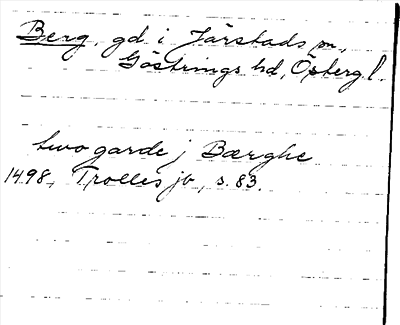 Berg, gd i Järstads sn,
Göstrings hd, Östergl.
two garde j Bærghe
1498, Trolles jb, s. 83.